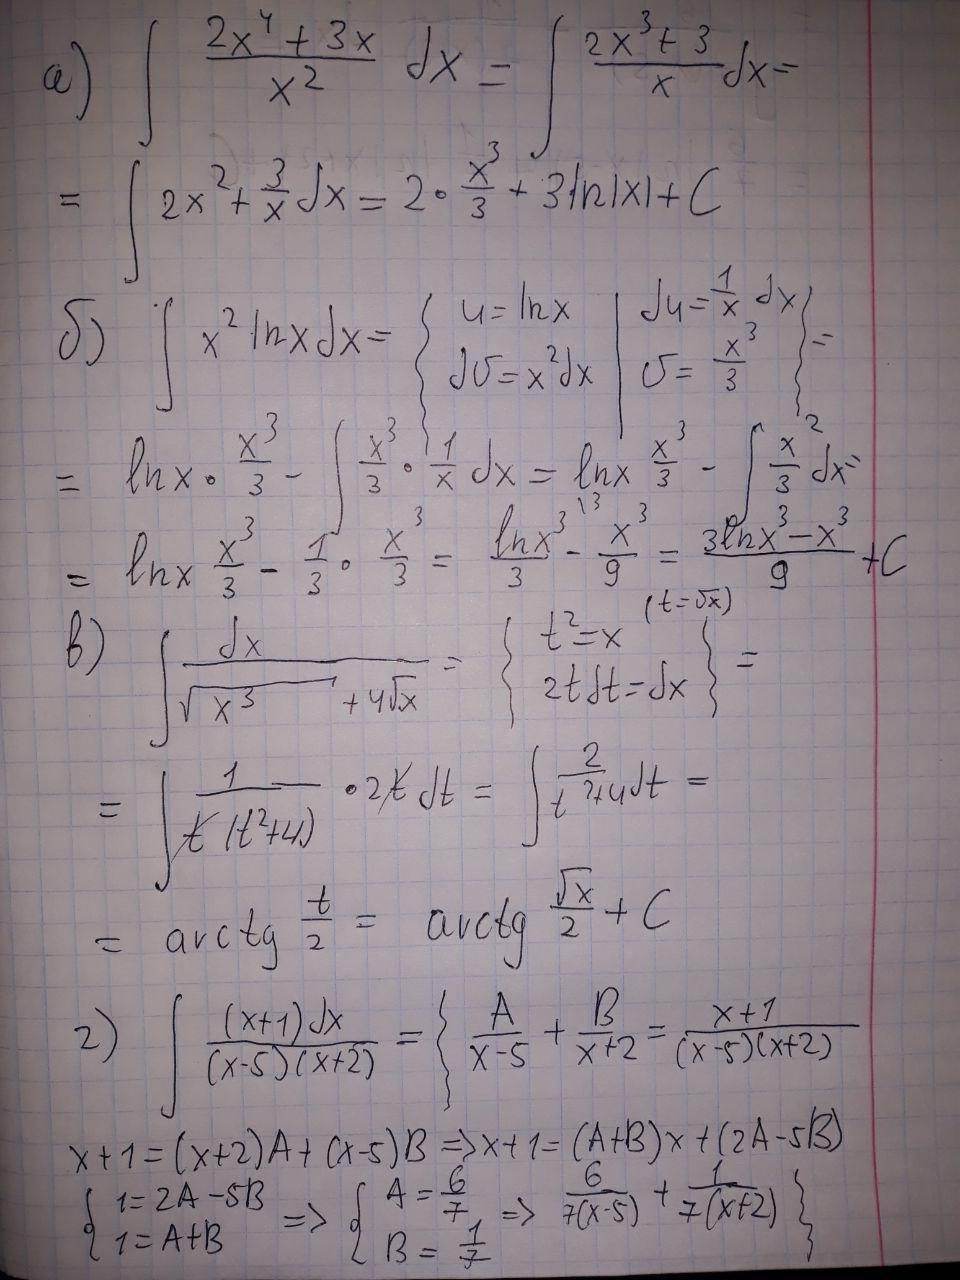 а) ∫ (2x⁴ + 3x)/x² dx = ∫ (2x³ + 3)/x dx =
= ∫ 2x² + 3/x dx = 2 · x³/3 + 3 ln|x| + C
б) ∫ x² ln x dx = { u = ln x | du = 1/x dx } =
dv = x² dx | v = x³/3
= ln x · x³/3 − ∫ x³/3 · 1/x dx = ln x x³/3 − ∫ x²/3 dx =
= ln x x³/3 − 1/3 · x³/3 = ln x³/3 \³ − x³/9 = (3 ln x³ − x³)/9 + C
в) ∫ dx/(√x³ + 4√x) = { t² = x (t = √x) } =
2t dt = dx
= ∫ 1/(t(t² + 4)) · 2t dt = ∫ 2/(t² + 4) dt =
= arctg t/2 = arctg √x/2 + C
г) ∫ (x+1)dx/((x-5)(x+2)) = { A/(x-5) + B/(x+2) = (x+1)/((x-5)(x+2))
x + 1 = (x+2)A + (x-5)B => x + 1 = (A+B)x + (2A-5B)
{ 1 = 2A - 5B => { A = 6/7 => 6/(7(x-5)) + 1/(7(x+2)) }
1 = A+B B = 1/7